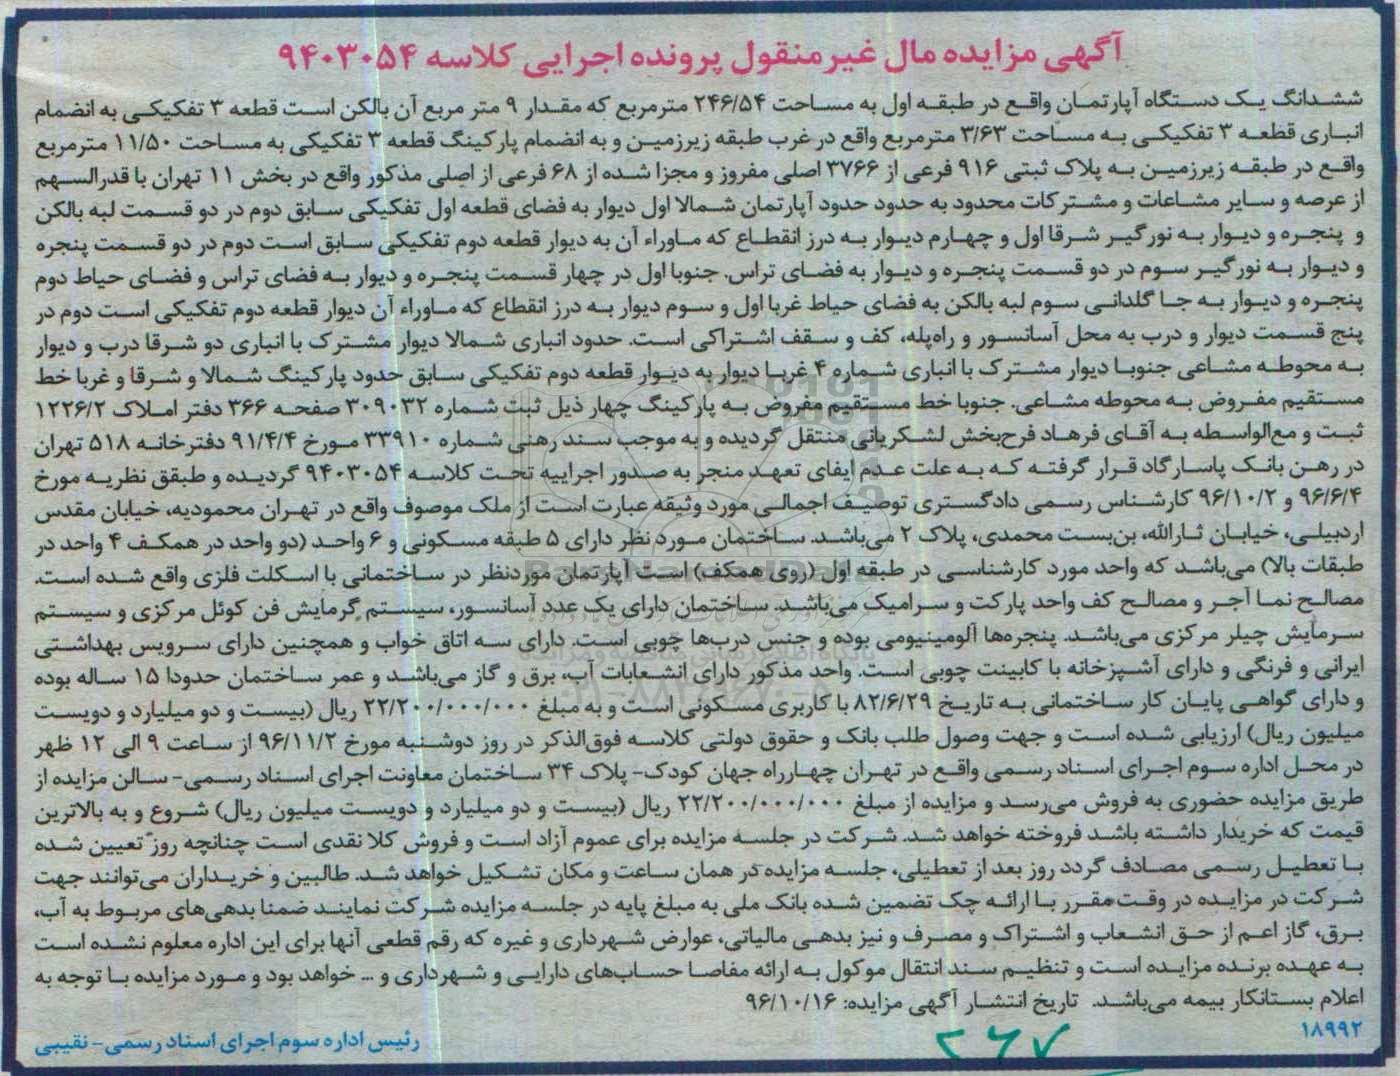 آگهی مزایده مال غیر منقول پرونده اجرایی کلاسه ۹۴۰۳۰۵۴
ششدانگ یک دستگاه آپارتمان واقع در طبقه اول به مساحت ۲۴۶/۵۴ مترمربع که مقدار ۹ متر مربع آن بالکن است قطعه ۳ تفکیکی به انضمام
انباری قطعه ۳ تفکیکی به مساحت ۳/۶۳ مترمربع واقع در غرب طبقه زیرزمین و به انضمام پارکینگ قطعه ۳ تفکیکی به مساحت ۱۱/۵۰ مترمربع
واقع در طبقه زیرزمین به پلاک ثبتی ۹۱۶ فرعی از ۳۷۶۶ اصلی مفروز و مجزا شده از ۶۸ فرعی از اصلی مذکور واقع در بخش ۱۱ تهران با قدرالسهم
از عرصه و سایر مشاعات و مشترکات محدود به حدود حدود آپارتمان شمالا اول دیوار به فضای قطعه اول تفکیکی سابق دوم در دو قسمت لبه بالکن
و پنجره و دیوار به نورگیر شرقا اول و چهارم دیوار به درز انقطاع که ماوراء آن به دیوار قطعه دوم تفکیکی سابق است دوم در دو قسمت پنجره
و دیوار به نورگیر سوم در دو قسمت پنجره و دیوار به فضای تراس. جنوبا اول در چهار قسمت پنجره و دیوار به فضای تراس و فضای حیاط دوم
پنجره و دیوار به جا گلدانی سوم لبه بالکن به فضای حیاط غربا اول و سوم دیوار به درز انقطاع که ماوراء آن دیوار قطعه دوم تفکیکی است دوم در
پنج قسمت دیوار و درب به محل آسانسور و راه‌پله، کف و سقف اشتراکی است. حدود انباری شمالا دیوار مشترک با انباری دو شرقا درب و دیوار
به محوطه مشاعی جنوبا دیوار مشترک با انباری شماره ۴ غربا دیوار به دیوار قطعه دوم تفکیکی سابق حدود پارکینگ شمالا و شرقا و غربا خط
مستقیم مفروض به محوطه مشاعی. جنوبا خط مستقیم مفروض به پارکینگ چهار ذیل ثبت شماره ۳۰۹۰۳۲ صفحه ۳۶۶ دفتر املاک ۱۲۲۶/۲
ثبت و مع‌الواسطه به آقای فرهاد فرح‌بخش لشکریانی منتقل گردیده و به موجب سند رهنی شماره ۳۳۹۱۰ مورخ ۹۱/۴/۴ دفترخانه ۵۱۸ تهران
در رهن بانک پاسارگاد قرار گرفته که به علت عدم ایفای تعهد منجر به صدور اجراییه تحت کلاسه ۹۴۰۳۰۵۴ گردیده و طبقق نظریه مورخ
۹۶/۶/۴ و ۹۶/۱۰/۲ کارشناس رسمی دادگستری توصیف اجمالی مورد وثیقه عبارت است از ملک موصوف واقع در تهران محمودیه، خیابان مقدس
اردبیلی، خیابان ثارالله، بن‌بست محمدی، پلاک ۲ می‌باشد. ساختمان مورد نظر دارای ۵ طبقه مسکونی و ۶ واحد (دو واحد در همکف ۴ واحد در
طبقات بالا) می‌باشد که واحد مورد کارشناسی در طبقه اول (روی همکف) است آپارتمان موردنظر در ساختمانی با اسکلت فلزی واقع شده است.
مصالح نما آجر و مصالح کف واحد پارکت و سرامیک می‌باشد. ساختمان دارای یک عدد آسانسور، سیستم گرمایش فن کوئل مرکزی و سیستم
سرمایش چیلر مرکزی می‌باشد. پنجره‌ها آلومینیومی بوده و جنس درب‌ها چوبی است. دارای سه اتاق خواب و همچنین دارای سرویس بهداشتی
ایرانی و فرنگی و دارای آشپزخانه با کابینت چوبی است. واحد مذکور دارای انشعابات آب، برق و گاز می‌باشد و عمر ساختمان حدودا ۱۵ ساله بوده
و دارای گواهی پایان کار ساختمانی به تاریخ ۸۲/۶/۲۹ با کاربری مسکونی است و به مبلغ ۲۲/۲۰۰/۰۰۰/۰۰۰ ریال (بیست و دو میلیارد و دویست
میلیون ریال) ارزیابی شده است و جهت وصول طلب بانک و حقوق دولتی کلاسه فوق‌الذکر در روز دوشنبه مورخ ۹۶/۱۱/۲ از ساعت ۹ الی ۱۲ ظهر
در محل اداره سوم اجرای اسناد رسمی واقع در تهران چهارراه جهان کودک- پلاک ۳۴ ساختمان معاونت اجرای اسناد رسمی- سالن مزایده از
طریق مزایده حضوری به فروش می‌رسد و مزایده از مبلغ ۲۲/۲۰۰/۰۰۰/۰۰۰ ریال (بیست و دو میلیارد و دویست میلیون ریال) شروع و به بالاترین
قیمت که خریدار داشته باشد فروخته خواهد شد. شرکت در جلسه مزایده برای عموم آزاد است و فروش کلا نقدی است چنانچه روز تعیین شده
با تعطیل رسمی مصادف گردد روز بعد از تعطیلی، جلسه مزایده در همان ساعت و مکان تشکیل خواهد شد. طالبین و خریداران می‌توانند جهت
شرکت در مزایده در وقت مقرر با ارائه چک تضمین شده بانک ملی به مبلغ پایه در جلسه مزایده شرکت نمایند ضمنا بدهی‌های مربوط به آب،
برق، گاز اعم از حق انشعاب و اشتراک و مصرف و نیز بدهی مالیاتی، عوارض شهرداری و غیره که رقم قطعی آنها برای این اداره معلوم نشده است
به عهده برنده مزایده است و تنظیم سند انتقال موکول به ارائه مفاصا حساب‌های دارایی و شهرداری و ... خواهد بود و مورد مزایده با توجه به
اعلام بستانکار بیمه می‌باشد. تاریخ انتشار آگهی مزایده: ۹۶/۱۰/۱۶
۱۸۹۹۲
رئیس اداره سوم اجرای اسناد رسمی- نقیبی
۲۶۷